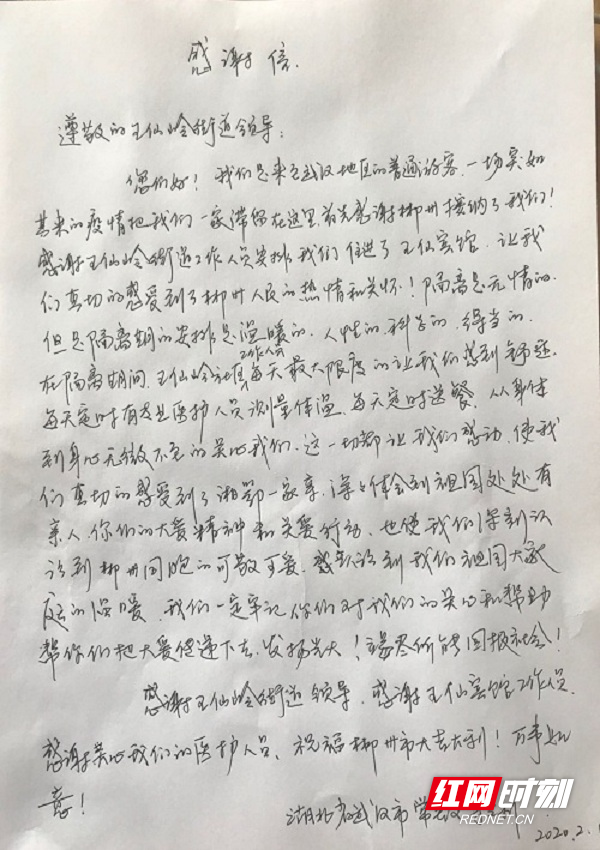 感谢信.
尊敬的王仙岭街道领导：
您们好！我们是来至武汉地区的普通游客.一场突如
其来的疫情把我们一家滞留在这里.首先感谢郴州接纳了我们！
感谢王仙岭街道工作人员安排我们住进了王仙宾馆.让我
们真切的感受到了郴州人民的热情和关怀！隔离是无情的.
但是隔离期的安排是温暖的.人性的.科学的.得当的.
工作人员
在隔离期间.王仙岭社区每天最大限度的让我们感到舒适.
每天定时有专业医护人员测量体温.每天定时送餐.从身体
到身心无微不至的关心我们.这一切都让我们感动.使我
们真切的感受到了湘鄂一家亲.深深体会到祖国处处有
亲人.你们的大爱精神和关爱行动.也使我们深刻认
识到郴州同胞的可敬可爱.感到我们祖国大家
庭的温暖.我们一定牢记你们对我们的关心和帮助
帮你们把大爱传递下去.发扬光大！竭尽所能回报社会！
感谢王仙岭街道领导.感谢王仙宾馆工作人员.
感谢关心我们的医护人员.祝福郴州市大吉大利！万事如
意！
湖北省武汉市
2020.2.
红网时刻
REDNET.CN